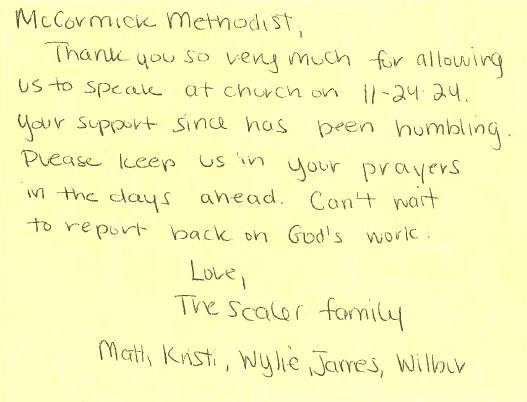 McCormick Methodist,
Thank you so very much for allowing
us to speak at church on 11-24-24.
Your support since has been humbling.
Please keep us in your prayers
in the days ahead. Can't wait
to report back on God's work.
Love,
The Scaler family
Matt, Kristi, Wylie, James, Wilbur